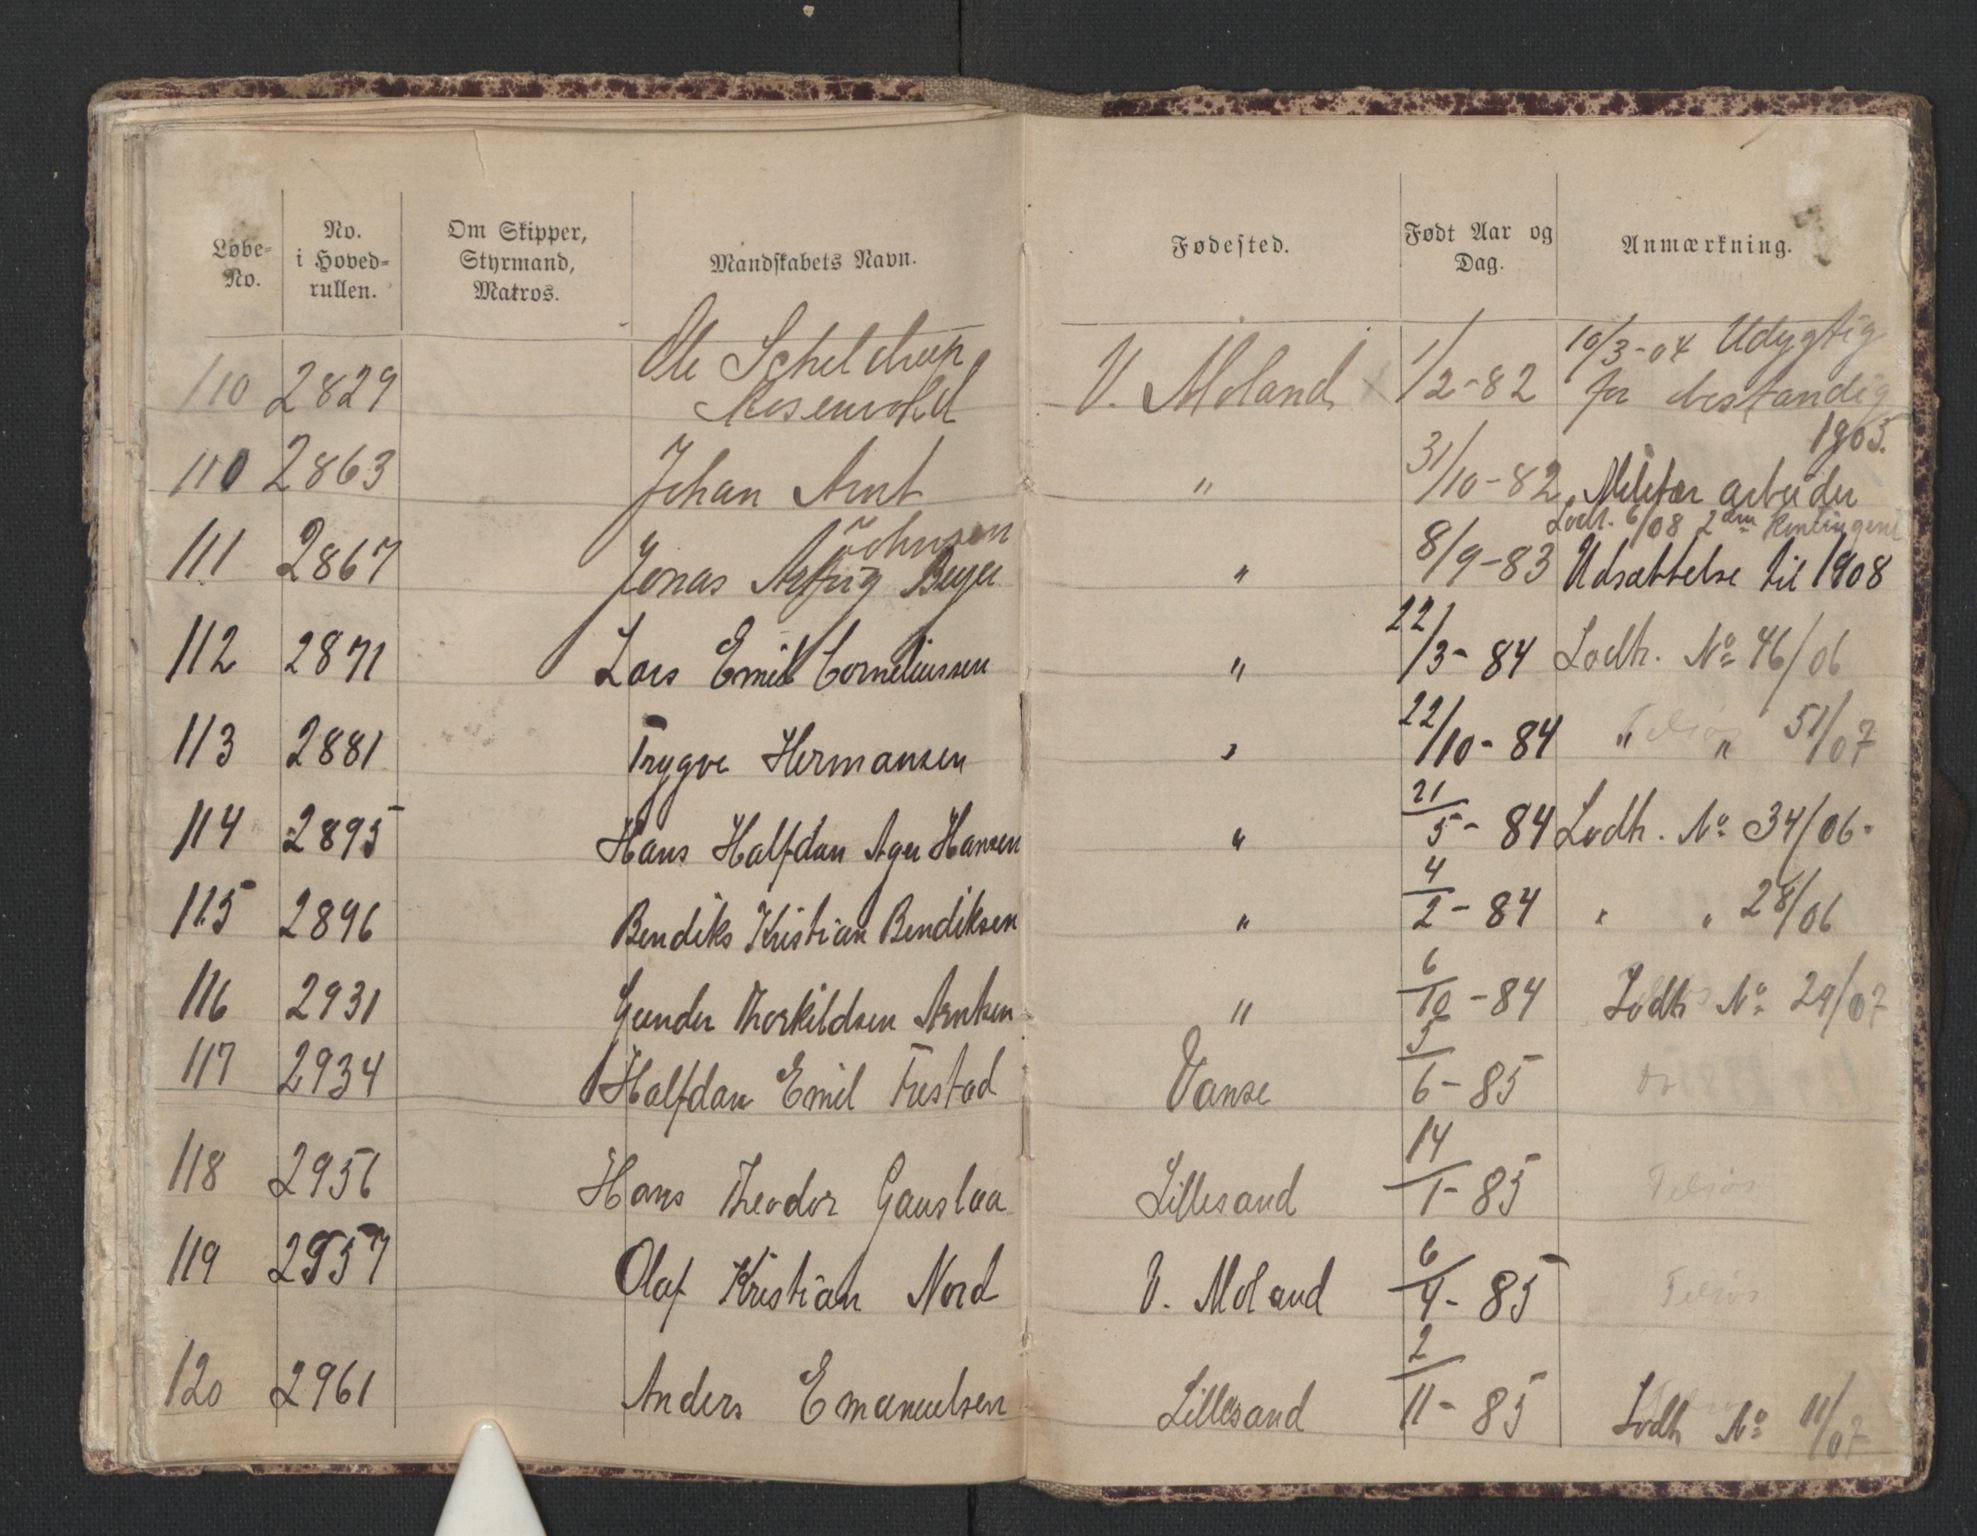 Løbe-No. No. i Hoved-rullen. Om Skipper, Styrmand, Matros. Mandskabets Navn. Fødested. Født Aar og Dag. Anmærkning.
110 2829 Ole Scheldrup Rosenvold V. Moland 1/2-82 10/3-04 Udygtig for bestandig
1905.
110 2863 Johan Arnt Johnsen " 31/10-82 Militær arbeider
Lodt. 6/08 2den Kontingent
111 2867 Jonas Beyer " 8/9-83 Udsættelse til 1908
112 2871 Lars Emil Corneliussen " 22/3-84 Lodtr. No 46/06
113 2881 Trygve Hermansen " 22/10-84 " " 51/07
114 2895 Hans Halfdan Ager Hansen " 21/5-84 Lodtr. No 34/06.
115 2896 Bendiks Kristian Bendiksen " 4/2-84 " " 28/06
116 2931 Gunder Thorkildsen Arntsen " 6/10-84 Lodtr No 29/07
117 2934 Halfdan Emil Frestad Vanse 5/6-85
118 2956 Hans Theodor Gauslaa Lillesand 14/1-85 Tilsiøs
119 2957 Olaf Kristian Nord V. Moland 6/4-85 Tilsiøs
120 2961 Anders Emanuelsen Lillesand 2/11-85 Lodtr No 11/07